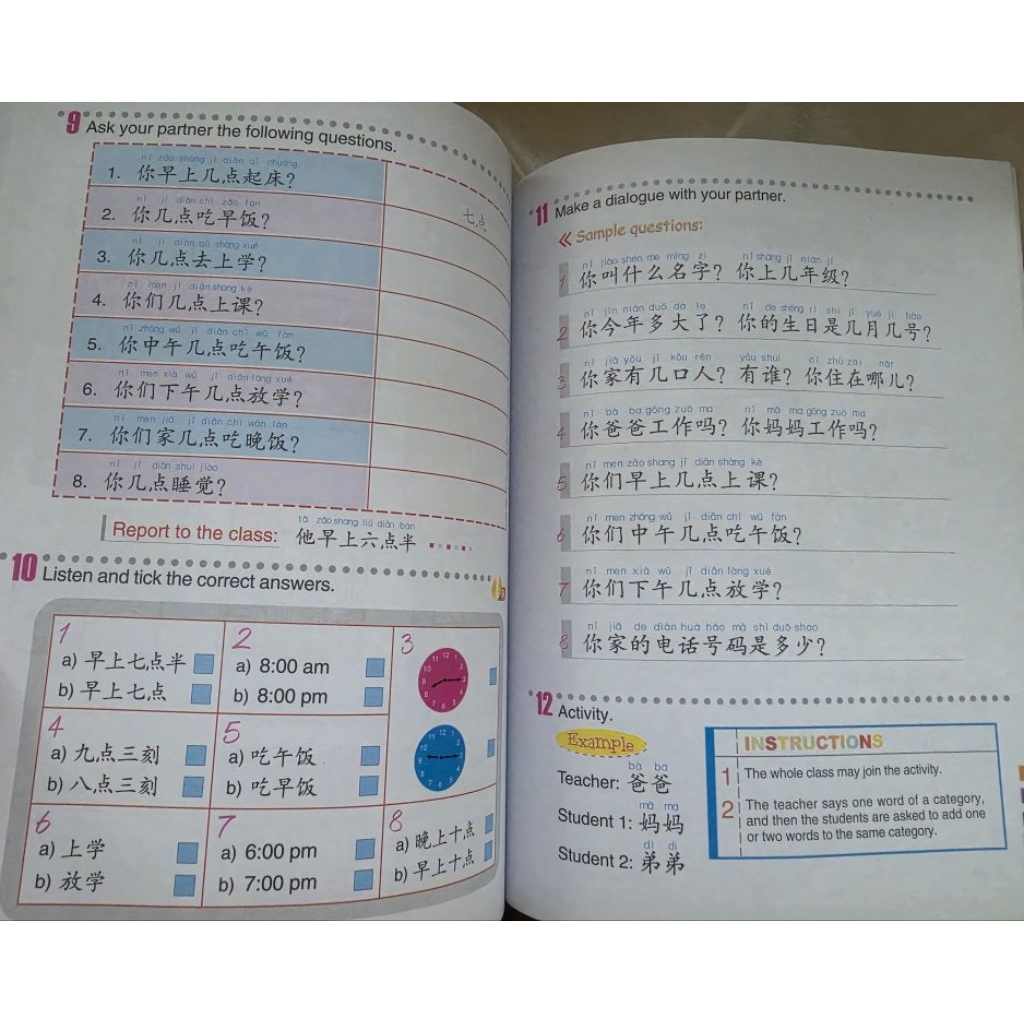 9 Ask your partner the following questions.
nǐ zǎo shang jǐ diǎn qǐ chuáng
1. 你早上几点起床?
nǐ jǐ diǎn chī zǎo fàn
2. 你几点吃早饭?
七点
nǐ jǐ diǎn qù shàng xué
3. 你几点去上学?
nǐ men jǐ diǎn shàng kè
4. 你们几点上课?
nǐ zhōng wǔ jǐ diǎn chī wǔ fàn
5. 你中午几点吃午饭?
nǐ men xià wǔ jǐ diǎn fàng xué
6. 你们下午几点放学?
nǐ men jiā jǐ diǎn chī wǎn fàn
7. 你们家几点吃晚饭?
nǐ jǐ diǎn shuì jiào
8. 你几点睡觉?
tā zǎo shang liù diǎn bàn
Report to the class: 他早上六点半 ......
10 Listen and tick the correct answers.
1
a) 早上七点半
b) 早上七点
2
a) 8:00 am
b) 8:00 pm
3
4
a) 九点三刻
b) 八点三刻
5
a) 吃午饭
b) 吃早饭
6
a) 上学
b) 放学
7
a) 6:00 pm
b) 7:00 pm
8
a) 晚上十点
b) 早上十点
11 Make a dialogue with your partner.
« Sample questions:
nǐ jiào shén me míng zi nǐ shàng jǐ nián jí
1 你叫什么名字? 你上几年级?
nǐ jīn nián duō dà le nǐ de shēng rì shì jǐ yuè jǐ hào
2 你今年多大了? 你的生日是几月几号?
nǐ jiā yǒu jǐ kǒu rén yǒu shuí nǐ zhù zài nǎr
3 你家有几口人? 有谁? 你住在哪儿?
nǐ bà ba gōng zuò ma nǐ mā ma gōng zuò ma
4 你爸爸工作吗? 你妈妈工作吗?
nǐ men zǎo shang jǐ diǎn shàng kè
5 你们早上几点上课?
nǐ men zhōng wǔ jǐ diǎn chī wǔ fàn
6 你们中午几点吃午饭?
nǐ men xià wǔ jǐ diǎn fàng xué
7 你们下午几点放学?
nǐ jiā de diàn huà hào mǎ shì duō shao
8 你家的电话号码是多少?
12 Activity.
Example
bà ba
Teacher: 爸爸
mā ma
Student 1: 妈妈
dì di
Student 2: 弟弟
INSTRUCTIONS
1 The whole class may join the activity.
2 The teacher says one word of a category,
and then the students are asked to add one
or two words to the same category.